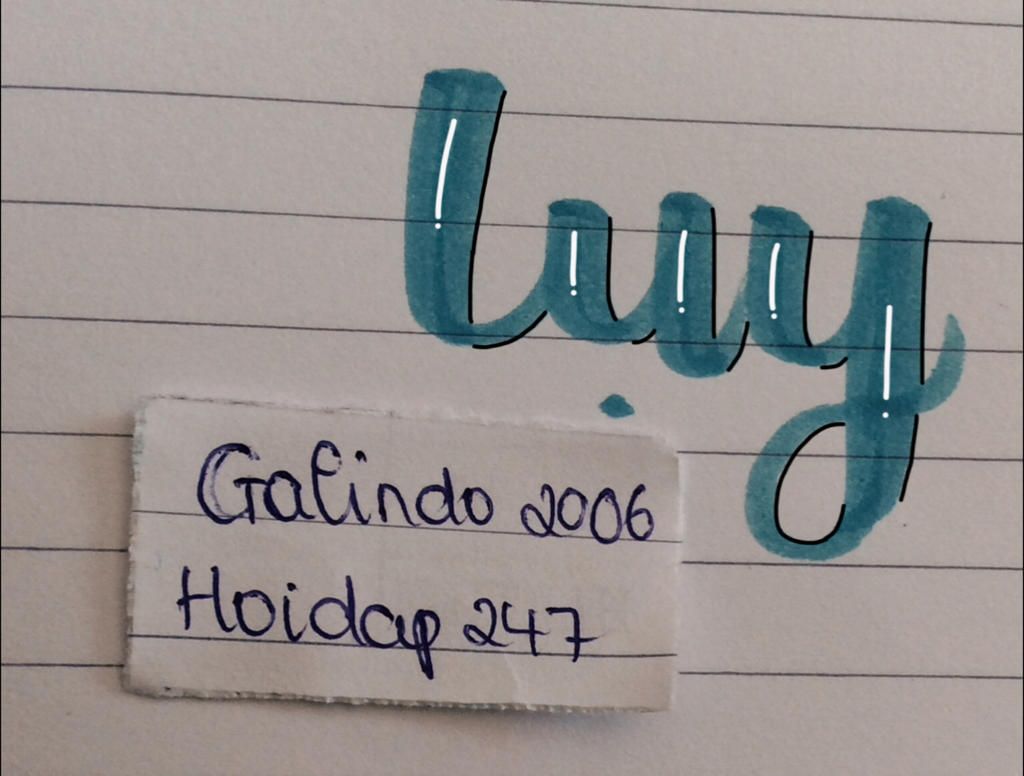 lụy
Galindo 2006
Hoidap 247